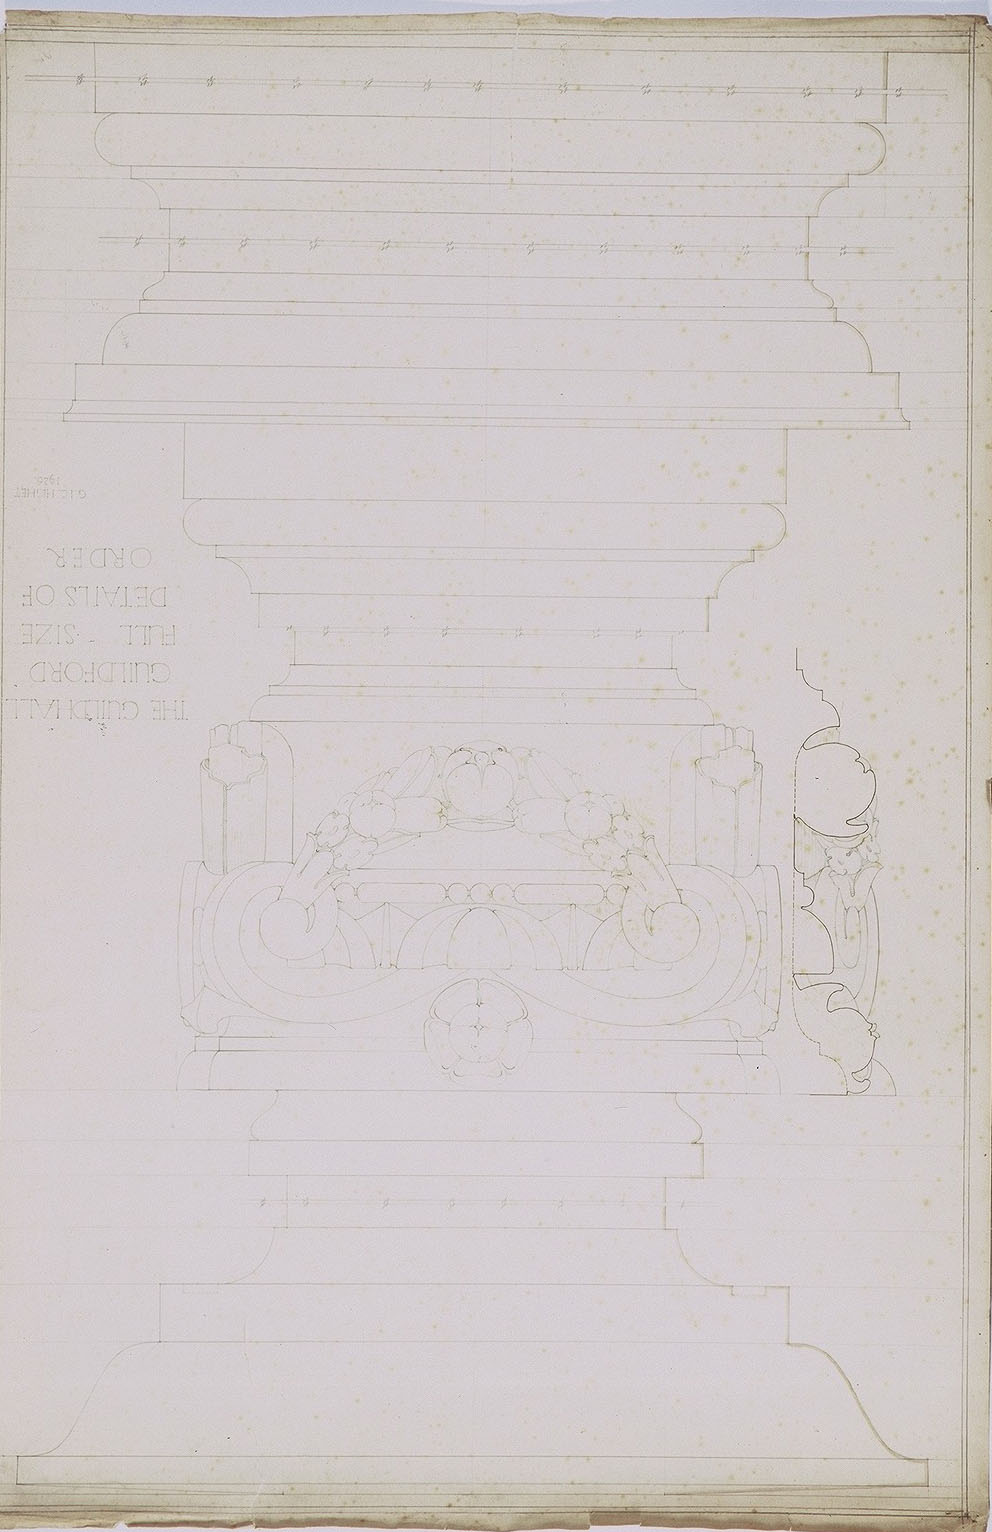 THE GUILDHALL
GUILDFORD
FULL - SIZE
DETAILS OF
ORDER
1926.